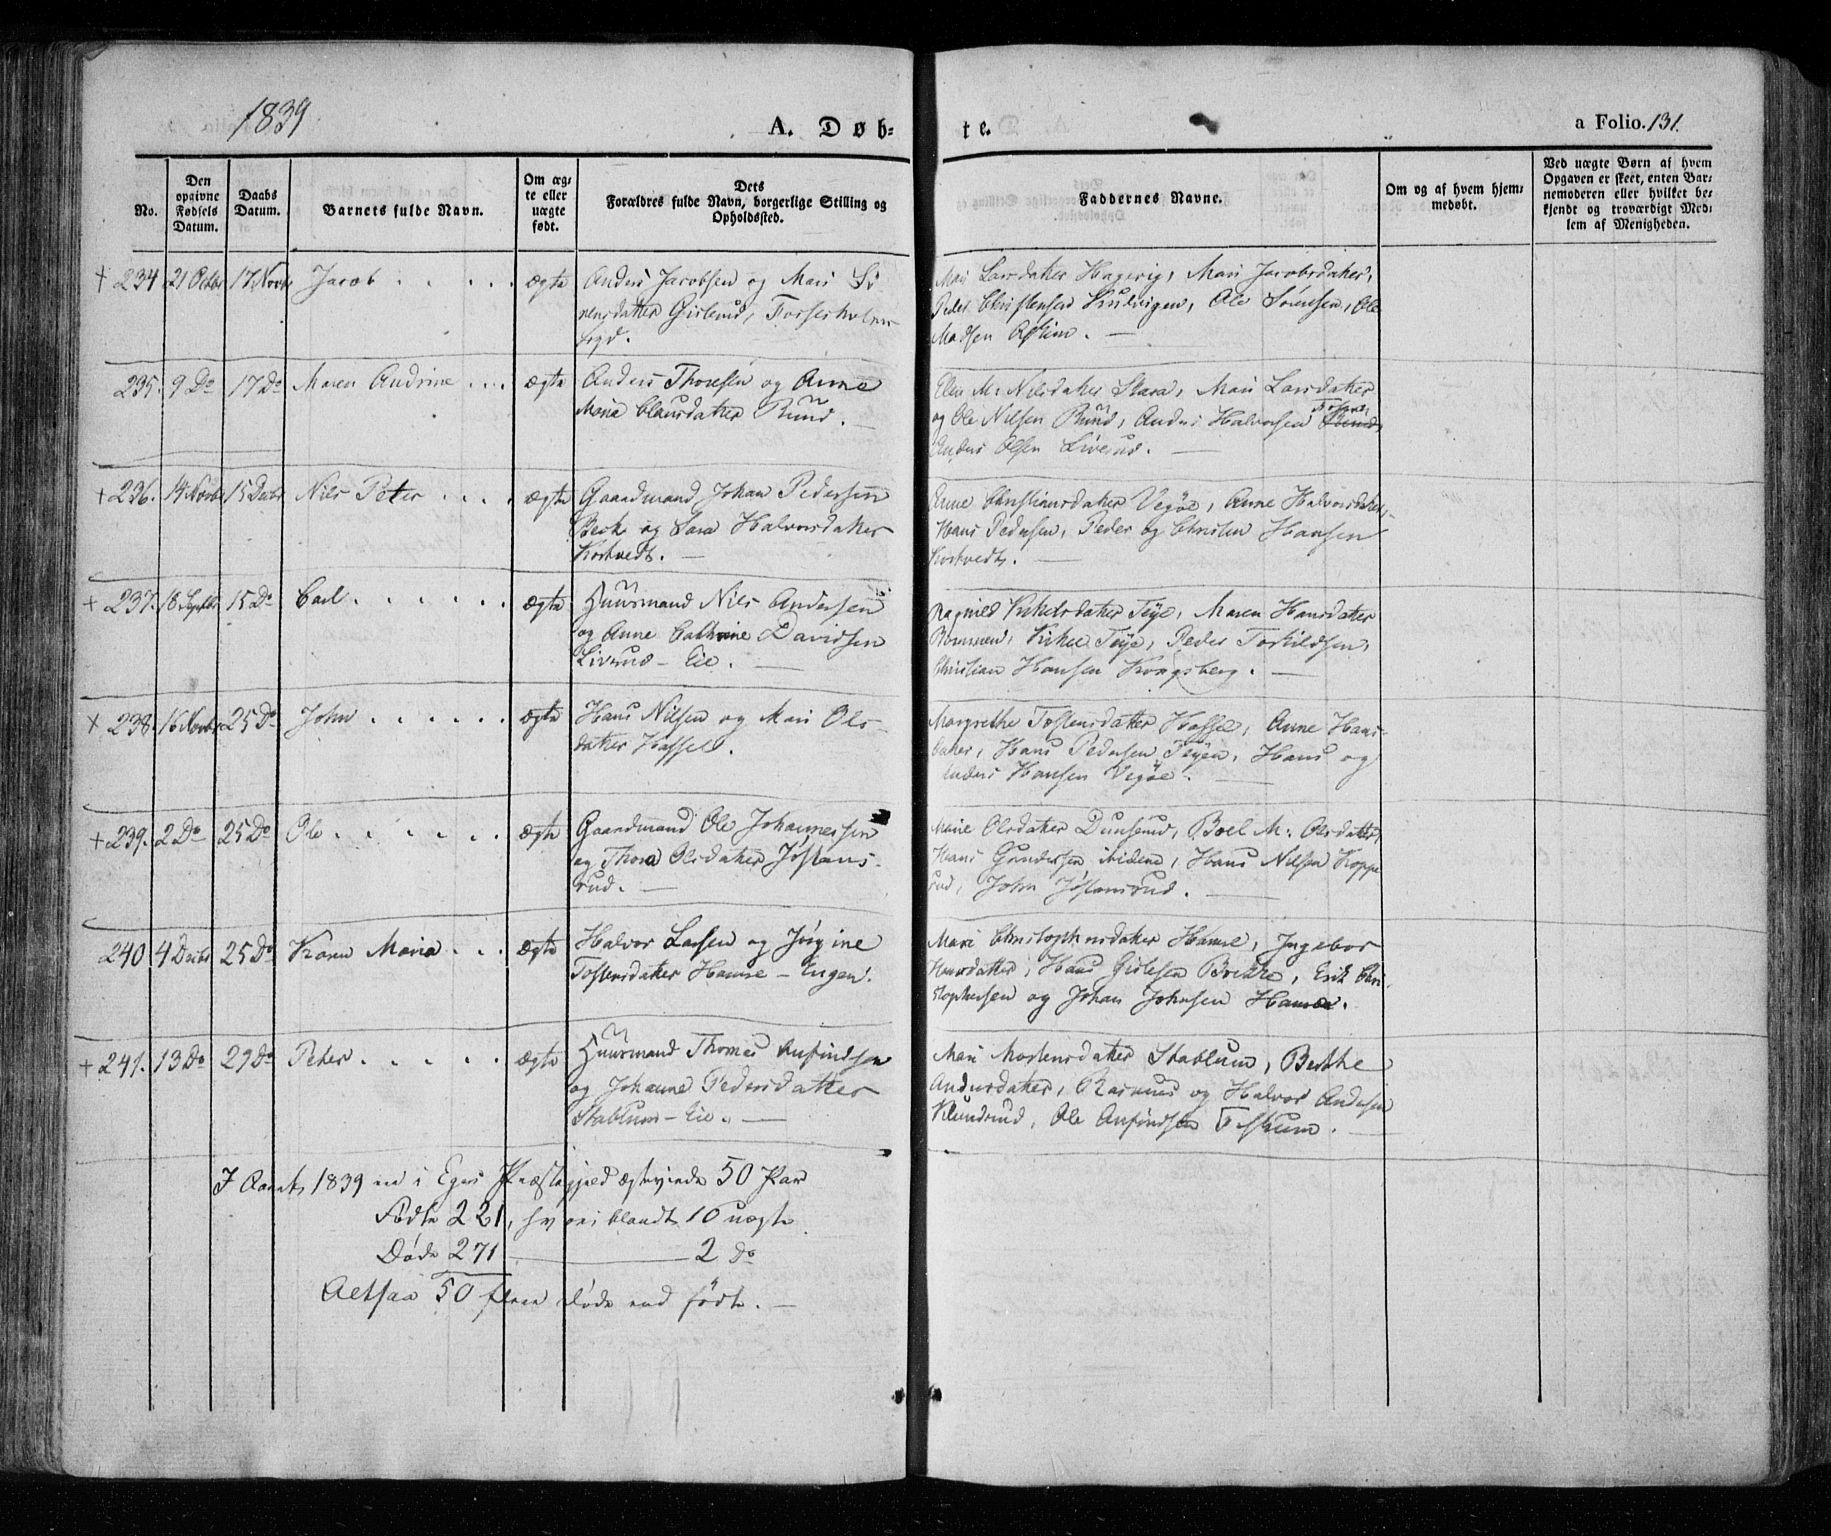 1839
A. Døb-
te.
a Folio. 131.
No.
Den opgivne Fødsels Datum.
Daabs Datum.
Barnets fulde Navn.
Om ægte eller uægte født.
Dets Forældres fulde Navn, borgerlige Stilling og Opholdssted.
Faddernes Navne.
Om og af hvem hjemmedøbt.
Ved uægte Børn af hvem Opgaven er skeet, enten Barnemoderen eller hvilket bekjendt og troværdigt Medlem af Menigheden.
+ 234 21 Octbr 17 Novbr Jacob . . . . . ægte Anders Jacobsen og Mari Sø-
rensdatter Gislerud,
Mari Larsdatter Hagerig, Mari Jacobsdatter,
Peder Christensen Ole Sørensen, Ole
Madsen Askim. —
235. 9 Do 17 Do Maren Andrine . . . ægte Anders Thoresen og Anne
Maria Clausdatter Ruud. —
Ellen M. Nilsdatter Skara, Mari Larsdatter
og Ole Nilsen Ruud, Anders Halvorsen
Anders Olsen Liverud. —
+ 236. 14 Novbr 15 Decbr Nils Peter . . . . ægte Gaardmand Johan Pedersen
Beck og Sara Halvorsdatter
Kortvedt. —
Anne Christiansdatter Vegøe, Anne Halvorsdatter,
Hans Pedersen, Peder og Christen Hansen
Kortvedt. —
+ 237. 18 Septbr 15 Do Carl . . . . . . ægte Huusmand Nils Andersen
og Anne Cathrine Davidsen
Liverud – Eie. —
Ragnild Maren Hansdatter
Peder Torkildsen,
Christian Hansen Kongsberg. —
× 238. 16 Novbr 25 Do John . . . . . . ægte Hans Nilsen og Mari Ols-
datter Hassel.
Margrethe Tostensdatter Hassel, Anne Hans-
datter, Hans Pedersen Teyen, Hans og
Anders Hansen Vegøe.
+ 239. 2 Do 25 Do Ole . . . . . . ægte Gaardmand Ole Johannessen
og Thora Olsdatter Jøstens-
rud. —
Marie Olsdatter Dunserud, Boel M. Olsdatter,
Hans Gundersen ibidem, Hans Nilsen Koppe
rud, John Jøstensrud. —
240 4 Decbr 25 Do Karen Maria . . . ægte Halvor Larsen og Jørgine
Tostensdatter Hamre – Engen.
Mari Christophersdatter Hamre, Ingebor
Hansdatter, Hans Gislesen Brekke, Erik Chri-
stophersen og Johan Johnsen Hamre.
+ 241. 13 Do 29 Do Peter . . . . . ægte Huusmand Thomas Anfindsen
og Johanne Pedersdatter
Stablum – Eie. —
Mari Mortensdatter Stablum, Berthe
Andersdatter, Rasmus og Halvor Andersen
Klundrud, Ole Anfindsen Foskum. —
I Aaret 1839 er i Egers Præstegjeld ægteviede 50 Par
Fødte 221, hvoriblandt 10 uægte
Døde 271 — 2 Do
Altsaa 50 flere døde end fødte. —